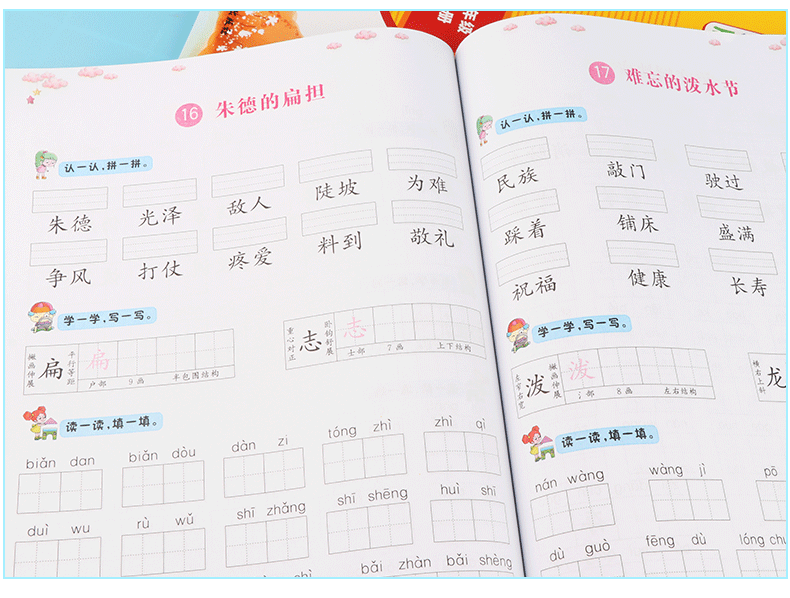 年级
册
16 朱德的扁担
认一认,拼一拼。
朱德 光泽 敌人 陡坡 为难
争风 打仗 疼爱 料到 敬礼
学一学,写一写。
撇画伸展 扁 平行等距 扁
户部 9画 半包围结构
重心对正 志 卧钩舒展 志
士部 7画 上下结构
读一读,填一填。
biǎn dan biǎn dòu dàn zi tóng zhì zhì qì
duì wu rù wǔ shī zhǎng shī shēng huì shī
bǎi zhàn bǎi shèng
17 难忘的泼水节
认一认,拼一拼。
民族 敲门 驶过
踩着 铺床 盛满
祝福 健康 长寿
学一学,写一写。
左窄右宽 泼 撇画伸展 泼
氵部 8画 左右结构
横右上斜 龙
读一读,填一填。
nán wàng wàng jì pō
dù guò fēng dù lóng